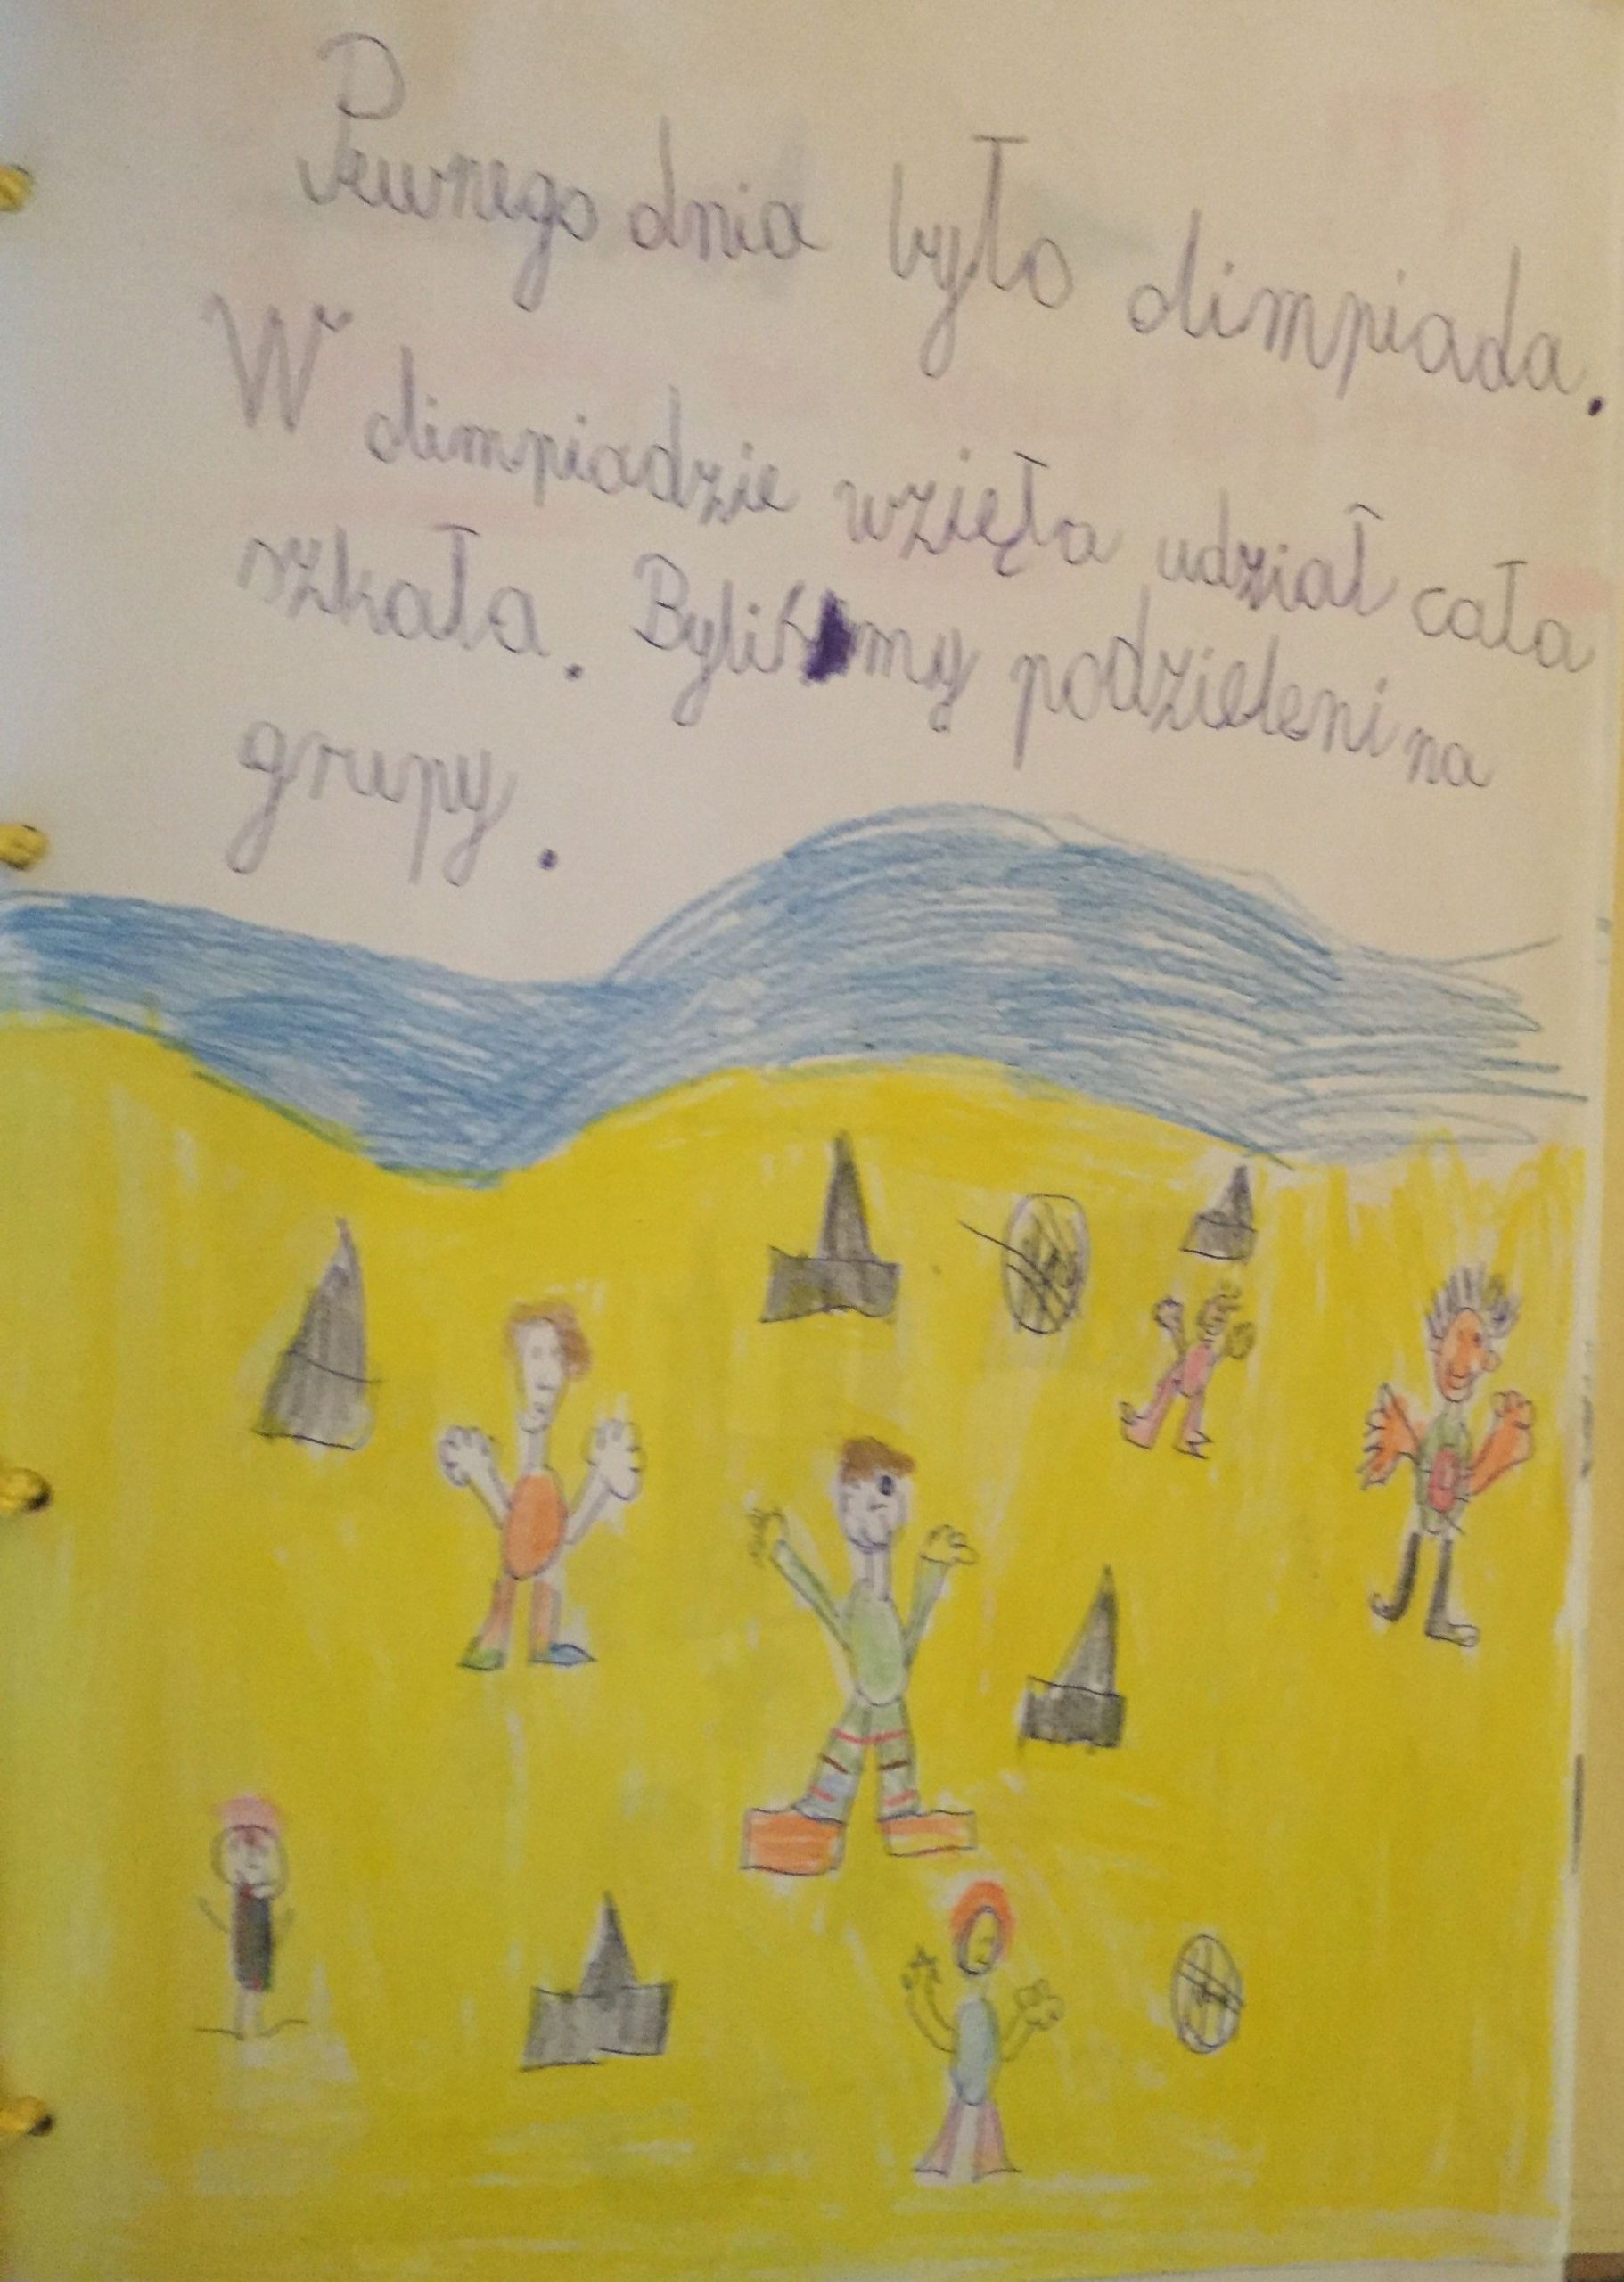 Pewnego dnia było olimpiada.
W olimpiadzie wzięła udział cała
szkoła. Byliśmy podzieleni na
grupy.